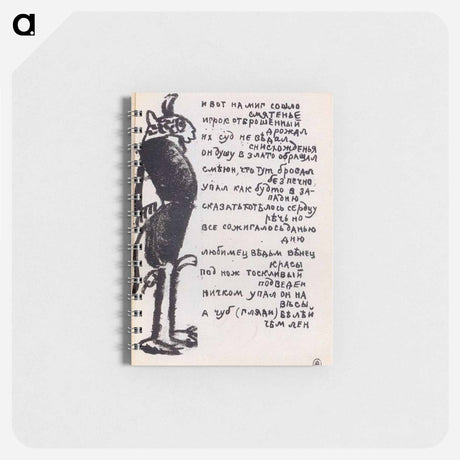 a
И ВОТ НА МИГ СОШЛО
СМЯТЕНЬЕ
ИГРОК ОТБРОШЕННЫЙ
ДРОЖАЛ
ИХ СУД НЕ ВѢДАЛ
СНИСХОЖДЕНЬЯ
ОН ДУШУ В ЗЛАТО ОБРАЩАЛ
СМѢЮН, ЧТО ТУТ БРОСАЛ
БЕЗПЕЧНО,
УПАЛ КАК БУДТО В ЗА-
ПАДНЮ
СКАЗАТЬ ХОТѢЛОСЬ СЕРДЦУ
РѢЧЬ НО
ВСЕ СОЖИГАЛОСЬ ДАНЬЮ
ДНЮ
ЛЮБИМЕЦ ВѢДЬМ ВѢНЕЦ
КРАСЫ
ПОД НОЖ ТОСКЛИВЫЙ
ПОДВЕДЕН
НИЧКОМ УПАЛ ОН НА
ВѢСЫ
А ЧУБ (ГЛЯДИ) БѢЛѢЙ
ЧѢМ ЛЕН